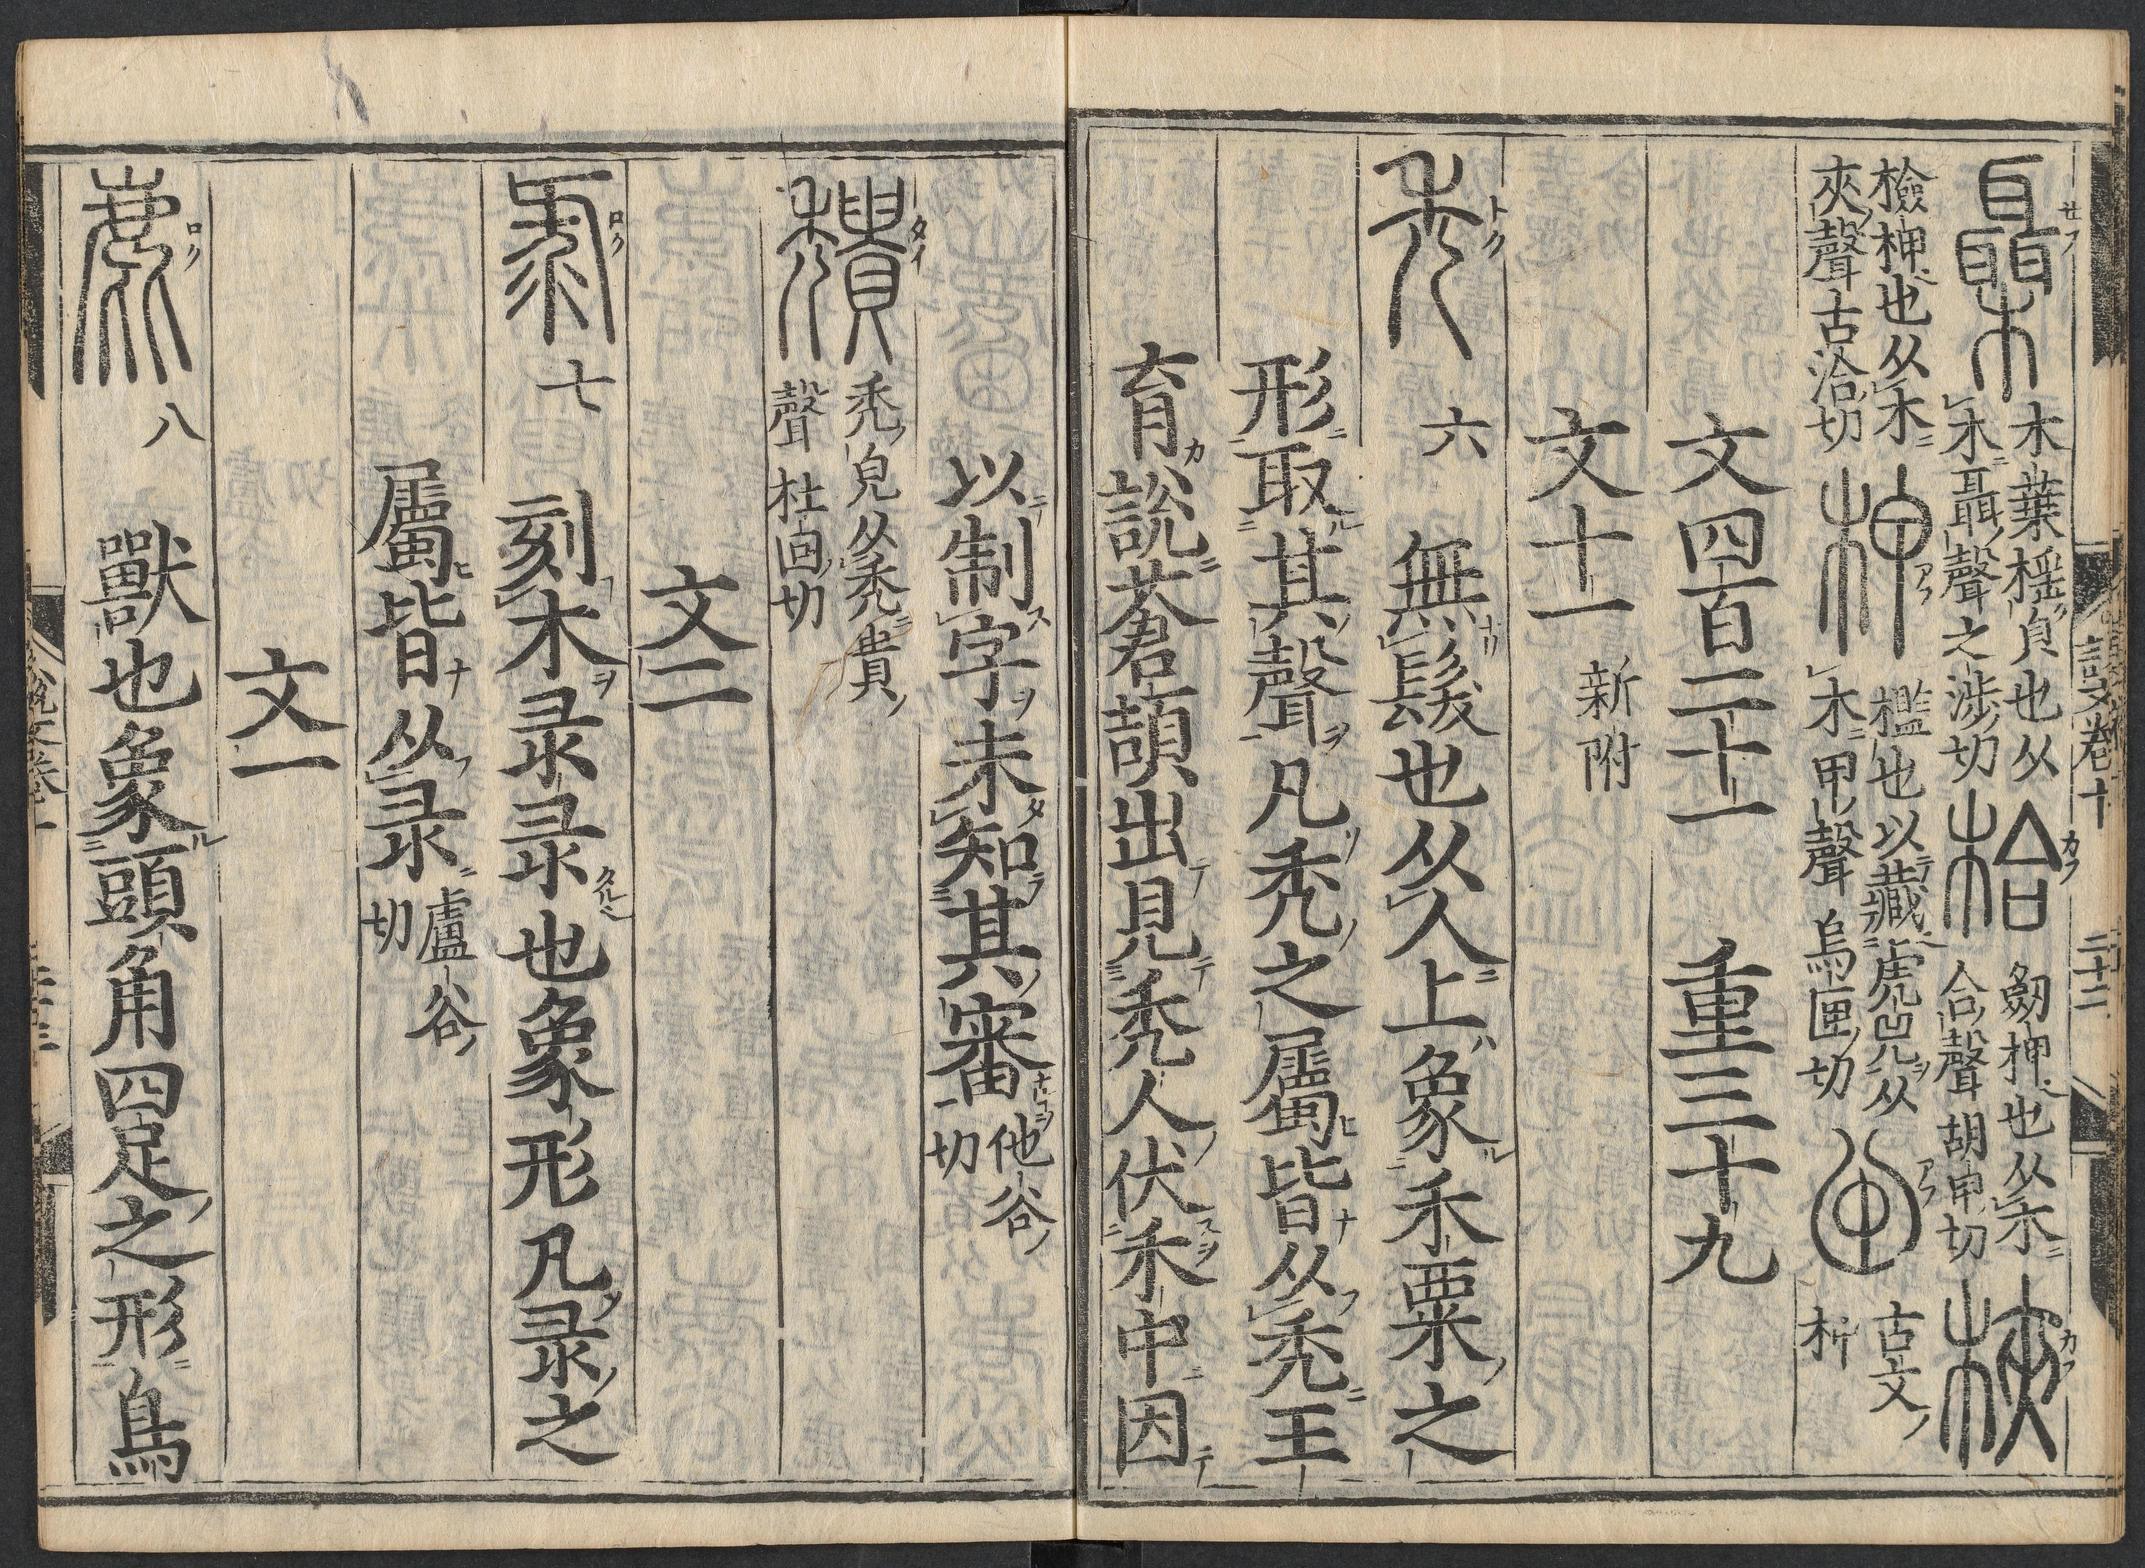 木葉搖皃也从
木聶聲之涉切
劒柙也从木
合聲胡甲切
檢柙也从木
夾聲古洽切
檻也以藏虎兕从
木甲聲烏匣切
古文
柙
文四百二十一 重三十九
文十一 新附
六 無髮也从人上象禾粟之
形取其聲凡秃之屬皆从秃王
育說蒼頡出見秃人伏禾中因
以制字未知其審他谷切
秃皃从秃貴
聲杜回切
文二
七 刻木彔彔也象形凡彔之
屬皆从彔盧谷切
文一
八 獸也象頭角四足之形鳥
說文卷十 二十二